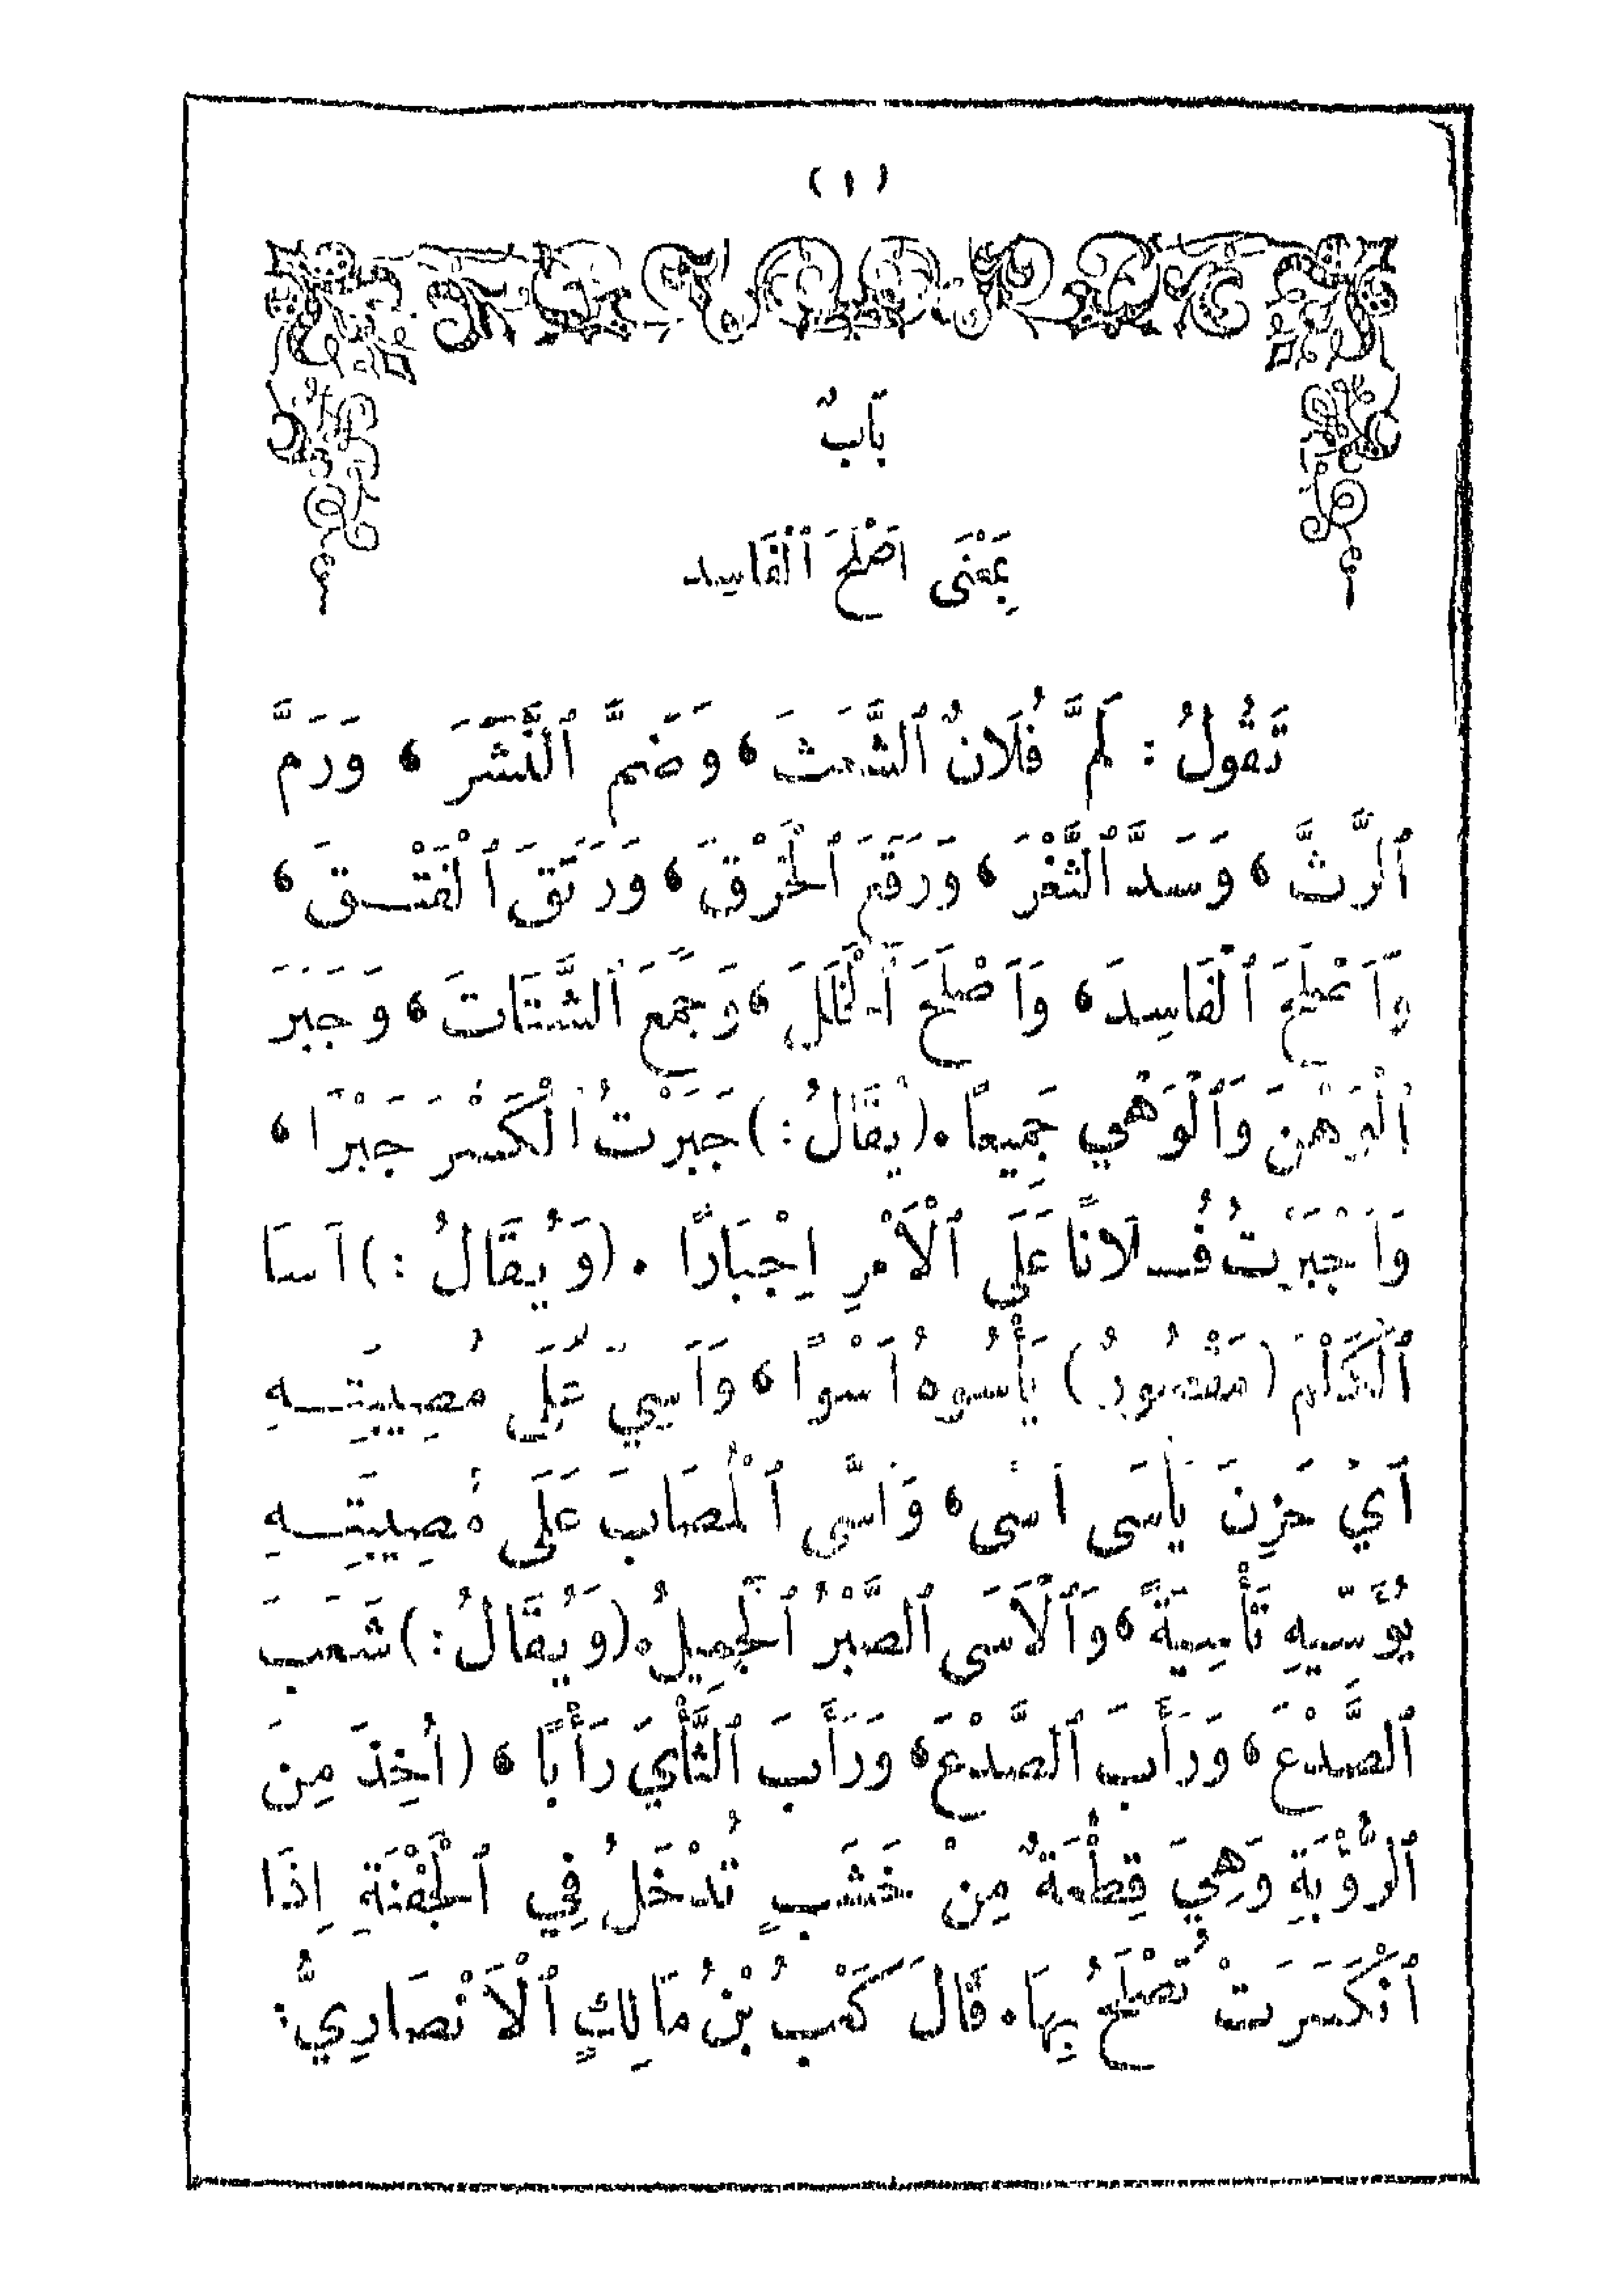 (١)
بَابٌ
بِمَعْنَى اَصْلَحَ ٱلْفَاسِدَ
تَقُولُ : لَمَّ فُلَانٌ ٱلشَّعَثَ، وَضَمَّ ٱلنَّشَرَ، وَرَمَّ
ٱلرَّثَّ، وَسَدَّ ٱلثَّغْرَ، وَرَقَعَ ٱلْخَرْقَ، وَرَتَقَ ٱلْفَتْقَ،
وَاَصْلَحَ ٱلْفَاسِدَ، وَاَصْلَحَ ٱلْخَلَلَ، وَجَمَعَ ٱلشَّتَاتَ، وَجَبَرَ
ٱلْوَهْنَ وَٱلْوَهْيَ جَمِيعًا. (يُقَالُ:) جَبَرْتُ ٱلْكَسْرَ جَبْرًا،
وَاَجْبَرْتُ فُلَانًا عَلَى ٱلْاَمْرِ اِجْبَارًا. (وَيُقَالُ:) اَسَا
ٱلْكَلْمَ (مَقْصُورٌ) يَأْسُوهُ اَسْوًا، وَاَسِيَ عَلَى مُصِيبَتِهِ
اَيْ حَزِنَ يَاْسَى اَسًى، وَاَسَّى ٱلْمُصَابَ عَلَى مُصِيبَتِهِ
يُؤَسِّيهِ تَأْسِيَةً، وَٱلْاَسَى ٱلصَّبْرُ ٱلْجَمِيلُ. (وَيُقَالُ:) شَعَبَ
ٱلصَّدْعَ، وَرَأَبَ ٱلصَّدْعَ، وَرَأَبَ ٱلثَّأْيَ رَأْبًا، (اُخِذَ مِنَ
ٱلرُّؤْبَةِ وَهِيَ قِطْعَةٌ مِنْ خَشَبٍ تُدْخَلُ فِي ٱلْجَفْنَةِ اِذَا
ٱنْكَسَرَتْ تُصْلَحُ بِهَا. قَالَ كَعْبُ بْنُ مَالِكٍ ٱلْاَنْصَارِيُّ: